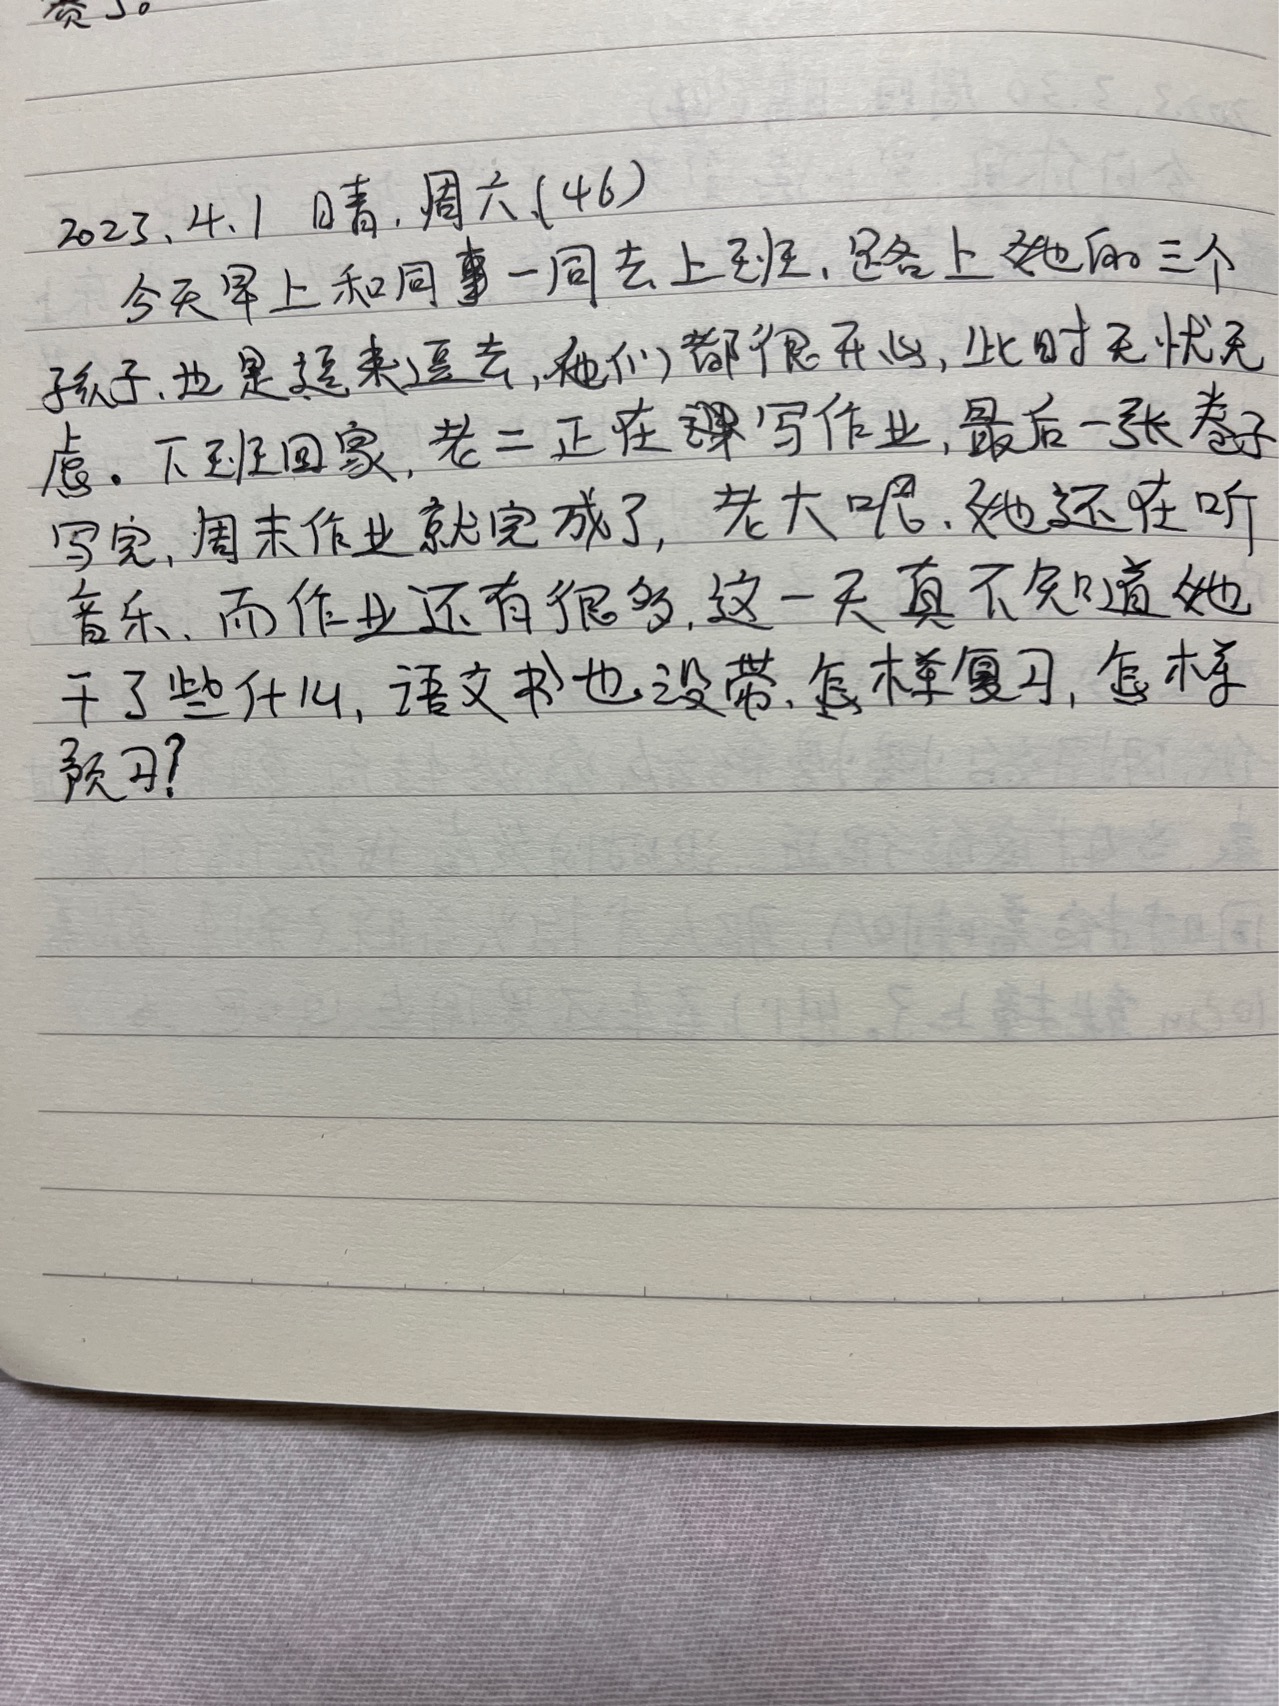 赛了。
2023.4.1 晴.周六.(46)
今天早上和同事一同去上班,路上她的三个
孩子.也是逗来逗去,他们都很开心,此时无忧无
虑.下班回家,老二正在写作业,最后一张卷子
写完,周末作业就完成了,老大呢.她还在听
音乐、而作业还有很多.这一天真不知道她
干了些什么,语文书也没带.怎样复习,怎样
预习?